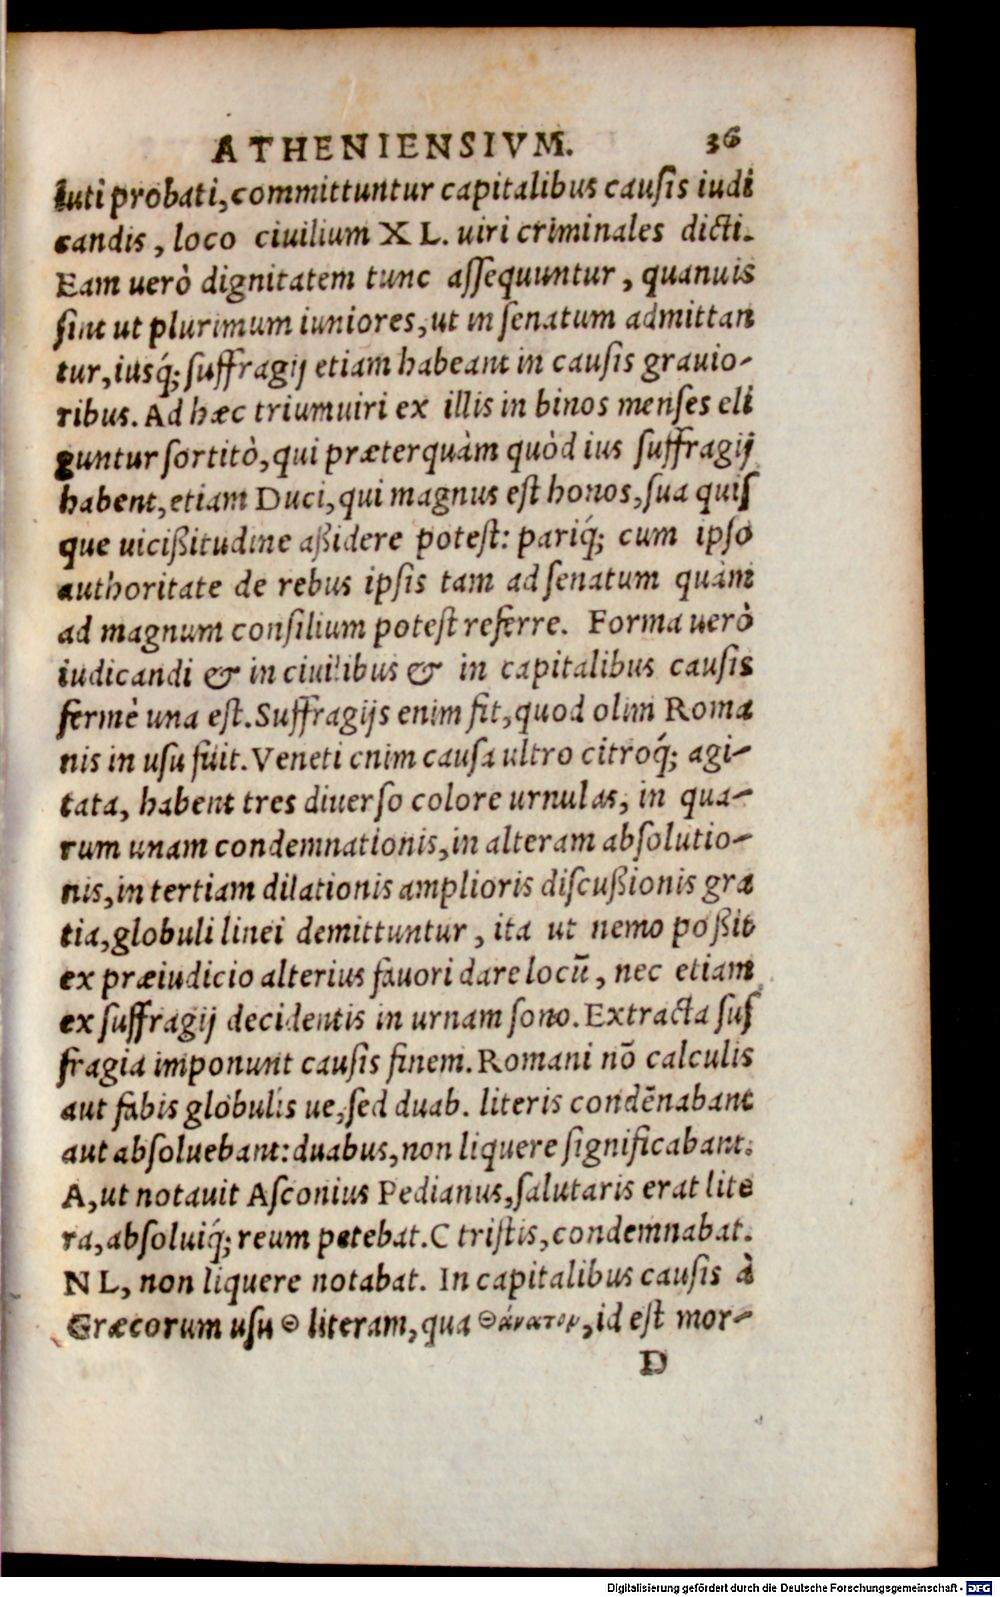 ATHENIENSIVM. 36
luti probati, committuntur capitalibus causis iudi
candis, loco ciuilium XL. uiri criminales dicti.
Eam uerò dignitatem tunc assequuntur, quanuis
sint ut plurimum iuniores, ut in senatum admittan
tur, iusq́; suffragij etiam habeant in causis grauio-
ribus. Ad hæc triumuiri ex illis in binos menses eli
guntur sortitò, qui præterquàm quòd ius suffragij
habent, etiam Duci, qui magnus est honos, sua quis
que uicißitudine aßidere potest: pariq́; cum ipso
authoritate de rebus ipsis tam ad senatum quàm
ad magnum consilium potest referre. Forma uerò
iudicandi & in ciuilibus & in capitalibus causis
fermè una est. Suffragijs enim fit, quod olim Roma
nis in usu fuit. Veneti enim causa ultro citroq́; agi-
tata, habent tres diuerso colore urnulas, in qua-
rum unam condemnationis, in alteram absolutio-
nis, in tertiam dilationis amplioris discußionis gra
tia, globuli linei demittuntur, ita ut nemo poßit
ex præiudicio alterius fauori dare locū, nec etiam
ex suffragij decidentis in urnam sono. Extracta suf
fragia imponunt causis finem. Romani nō calculis
aut fabis globulis ue, sed duab. literis condēnabant
aut absoluebant: duabus, non liquere significabant.
A, ut notauit Asconius Pedianus, salutaris erat lite
ra, absoluiq́; reum petebat. C tristis, condemnabat.
NL, non liquere notabat. In capitalibus causis à
Græcorum usu Θ literam, qua Θάνατον, id est mor-
D
Digitalisierung gefördert durch die Deutsche Forschungsgemeinschaft - DFG